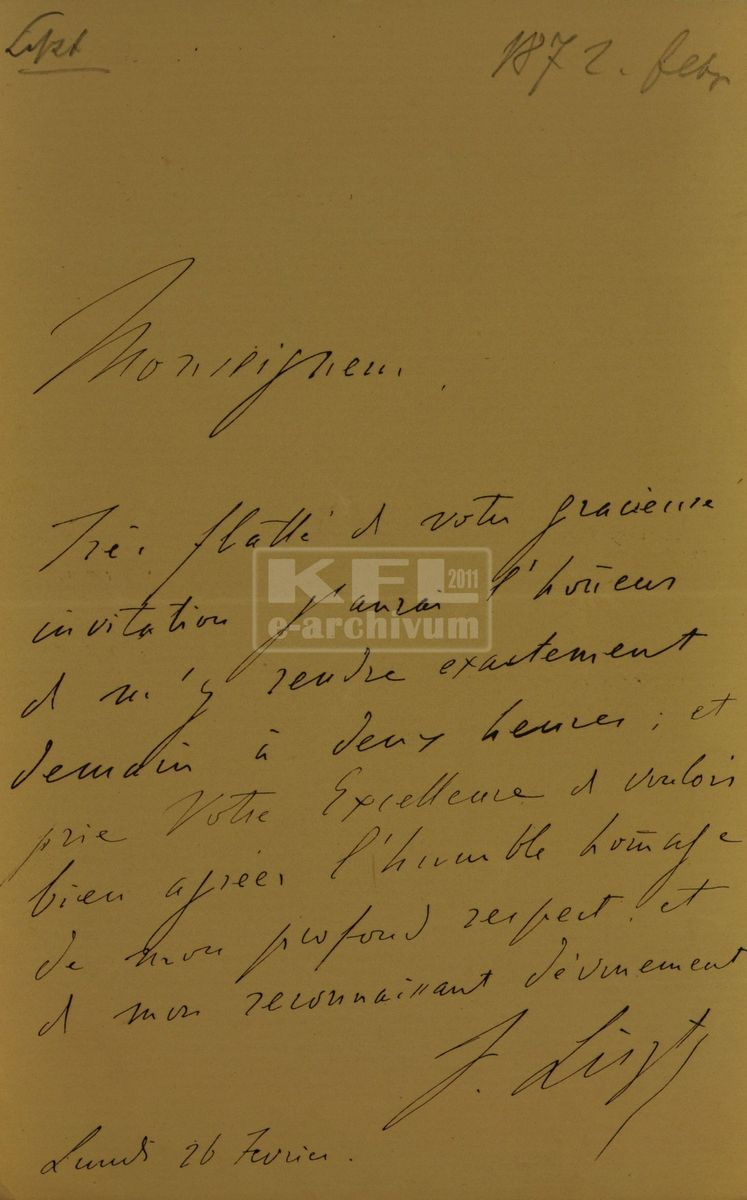 Liszt
1872. febr
Monseigneur,
Très flatté de votre gracieuse
invitation j'aurai l'hoñeur
de m'y rendre exactement
demain à deux heures; et
prie Votre Excellence de vouloir
bien agréer l'humble hom̃age
de mon profond respect et
de mon reconnaissant dévouement
F. Liszt
Lundi 26 Fevrier.
KFL 2011
e-archivum